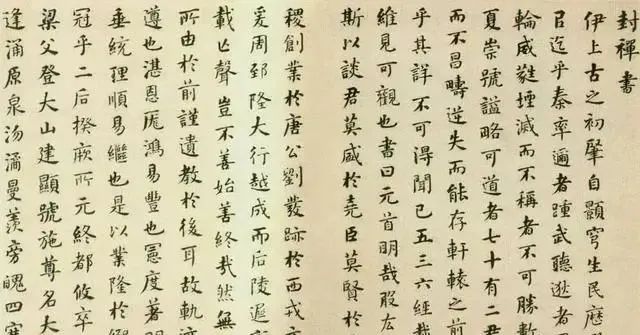 封禪書
伊上古之初肇自顥穹生民歷
后迄乎秦率邇者踵武聽逖者
輪威蕤堙滅而不稱者不可勝數
夏崇號謚略可道者七十有二君
而不昌疇逆失而能存軒轅之前
乎其詳不可得聞已五三六經載
維見可觀也書曰元首明哉股厷
斯以談君莫盛於堯臣莫賢於
稷創業於唐公劉發跡於西戎
爰周郅隆大行越成而后陵遲
載亡聲豈不善始善終哉然無
所由於前謹遺教於後耳故軌跡
遵也湛恩厖鴻易豐也憲度著明
垂統理順易繼也是以業隆於
冠乎二后揆厥所元終都攸卒
梁父登大山建顯號施尊名大
逢涌原泉沕潏曼羨旁魄四塞